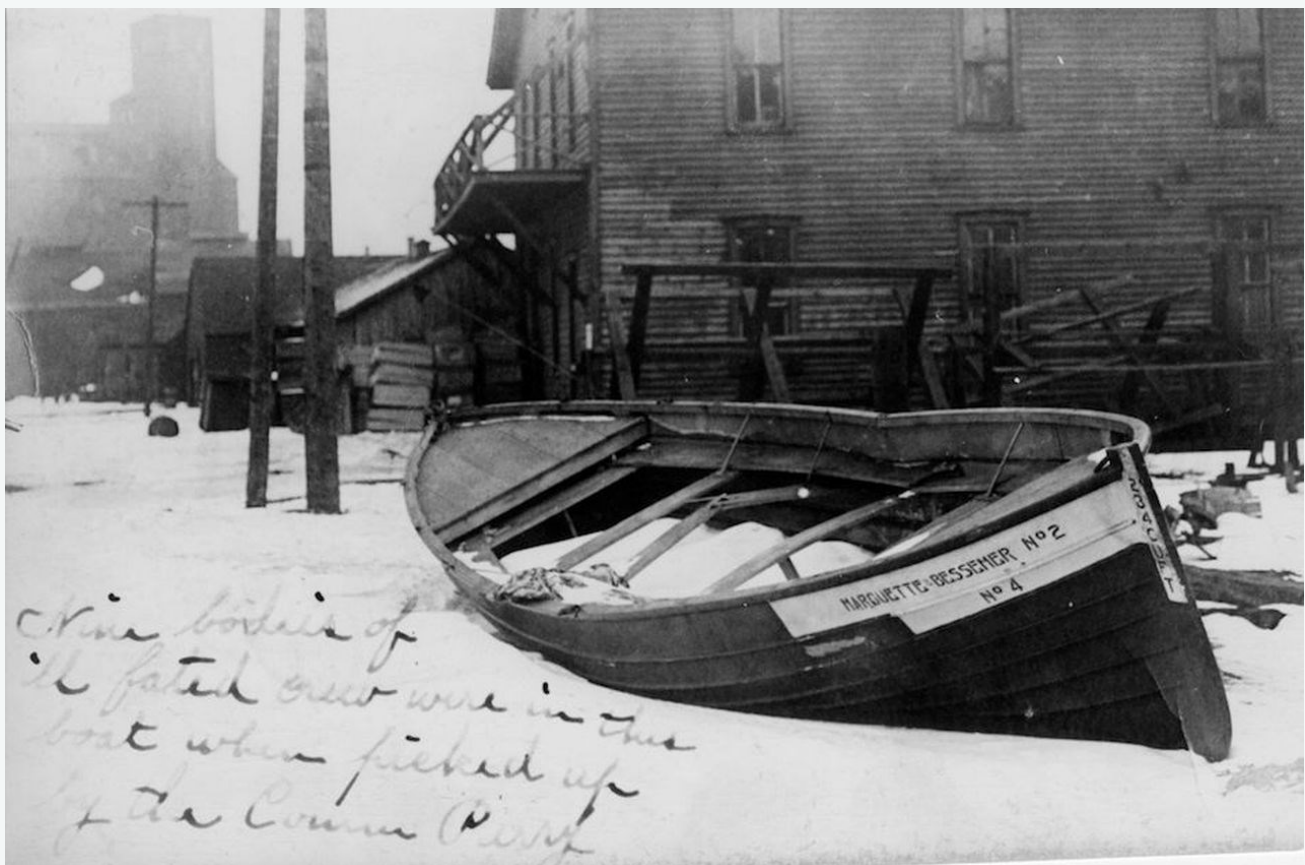 MARQUETTE & BESSEMER Nº2
Nº 4
Nine bodies of
ill fated crew were in this
boat when picked up
by the Comm Perry